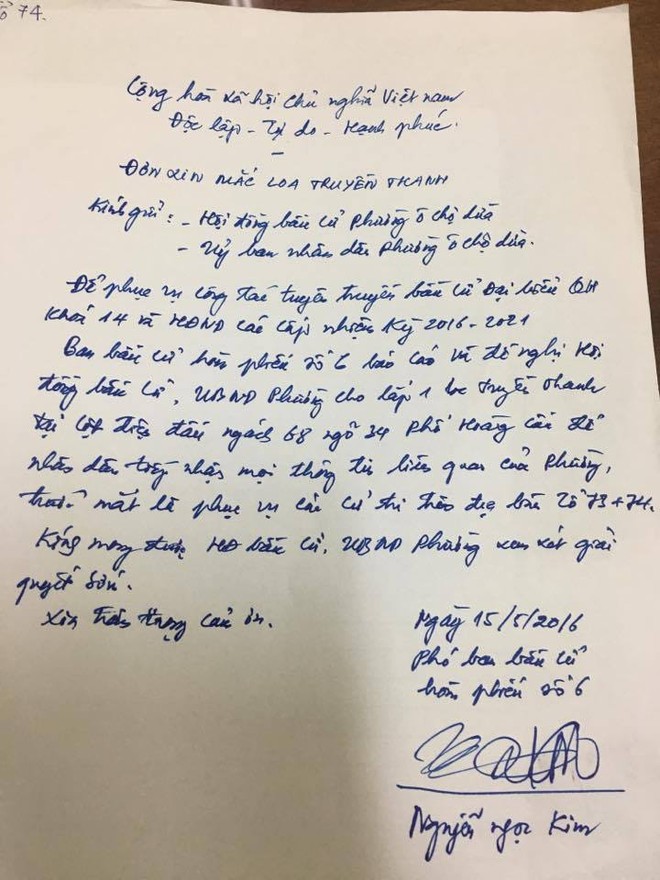 ổ 74.
Cộng hoà xã hội chủ nghĩa Việt nam
Độc lập - Tự do - Hạnh phúc.
ĐƠN XIN MẮC LOA TRUYỀN THANH
Kính gửi: - Hội đồng bầu cử Phường ô chợ dừa
- Uỷ ban nhân dân Phường ô chợ dừa.
Để phục vụ công tác tuyên truyền bầu cử Đại biểu QH
Khoá 14 và HĐND các cấp nhiệm kỳ 2016-2021
Ban bầu cử hòm phiếu số 6 báo cáo và đề nghị Hội
đồng bầu cử, UBND Phường cho lắp 1 loa truyền thanh
tại cột điện đầu ngách 68 ngõ 34 Phố Hoàng cầu để
nhân dân tiếp nhận mọi thông tin liên quan của Phường,
trước mắt là phục vụ các cử tri trên địa bàn Tổ 73+74.
Kính mong được HĐ bầu cử, UBND Phường xem xét giải
quyết sớm.
Xin trân trọng cảm ơn.
Ngày 15/5/2016
Phó ban bầu cử
hòm phiếu số 6
Nguyễn ngọc Kim